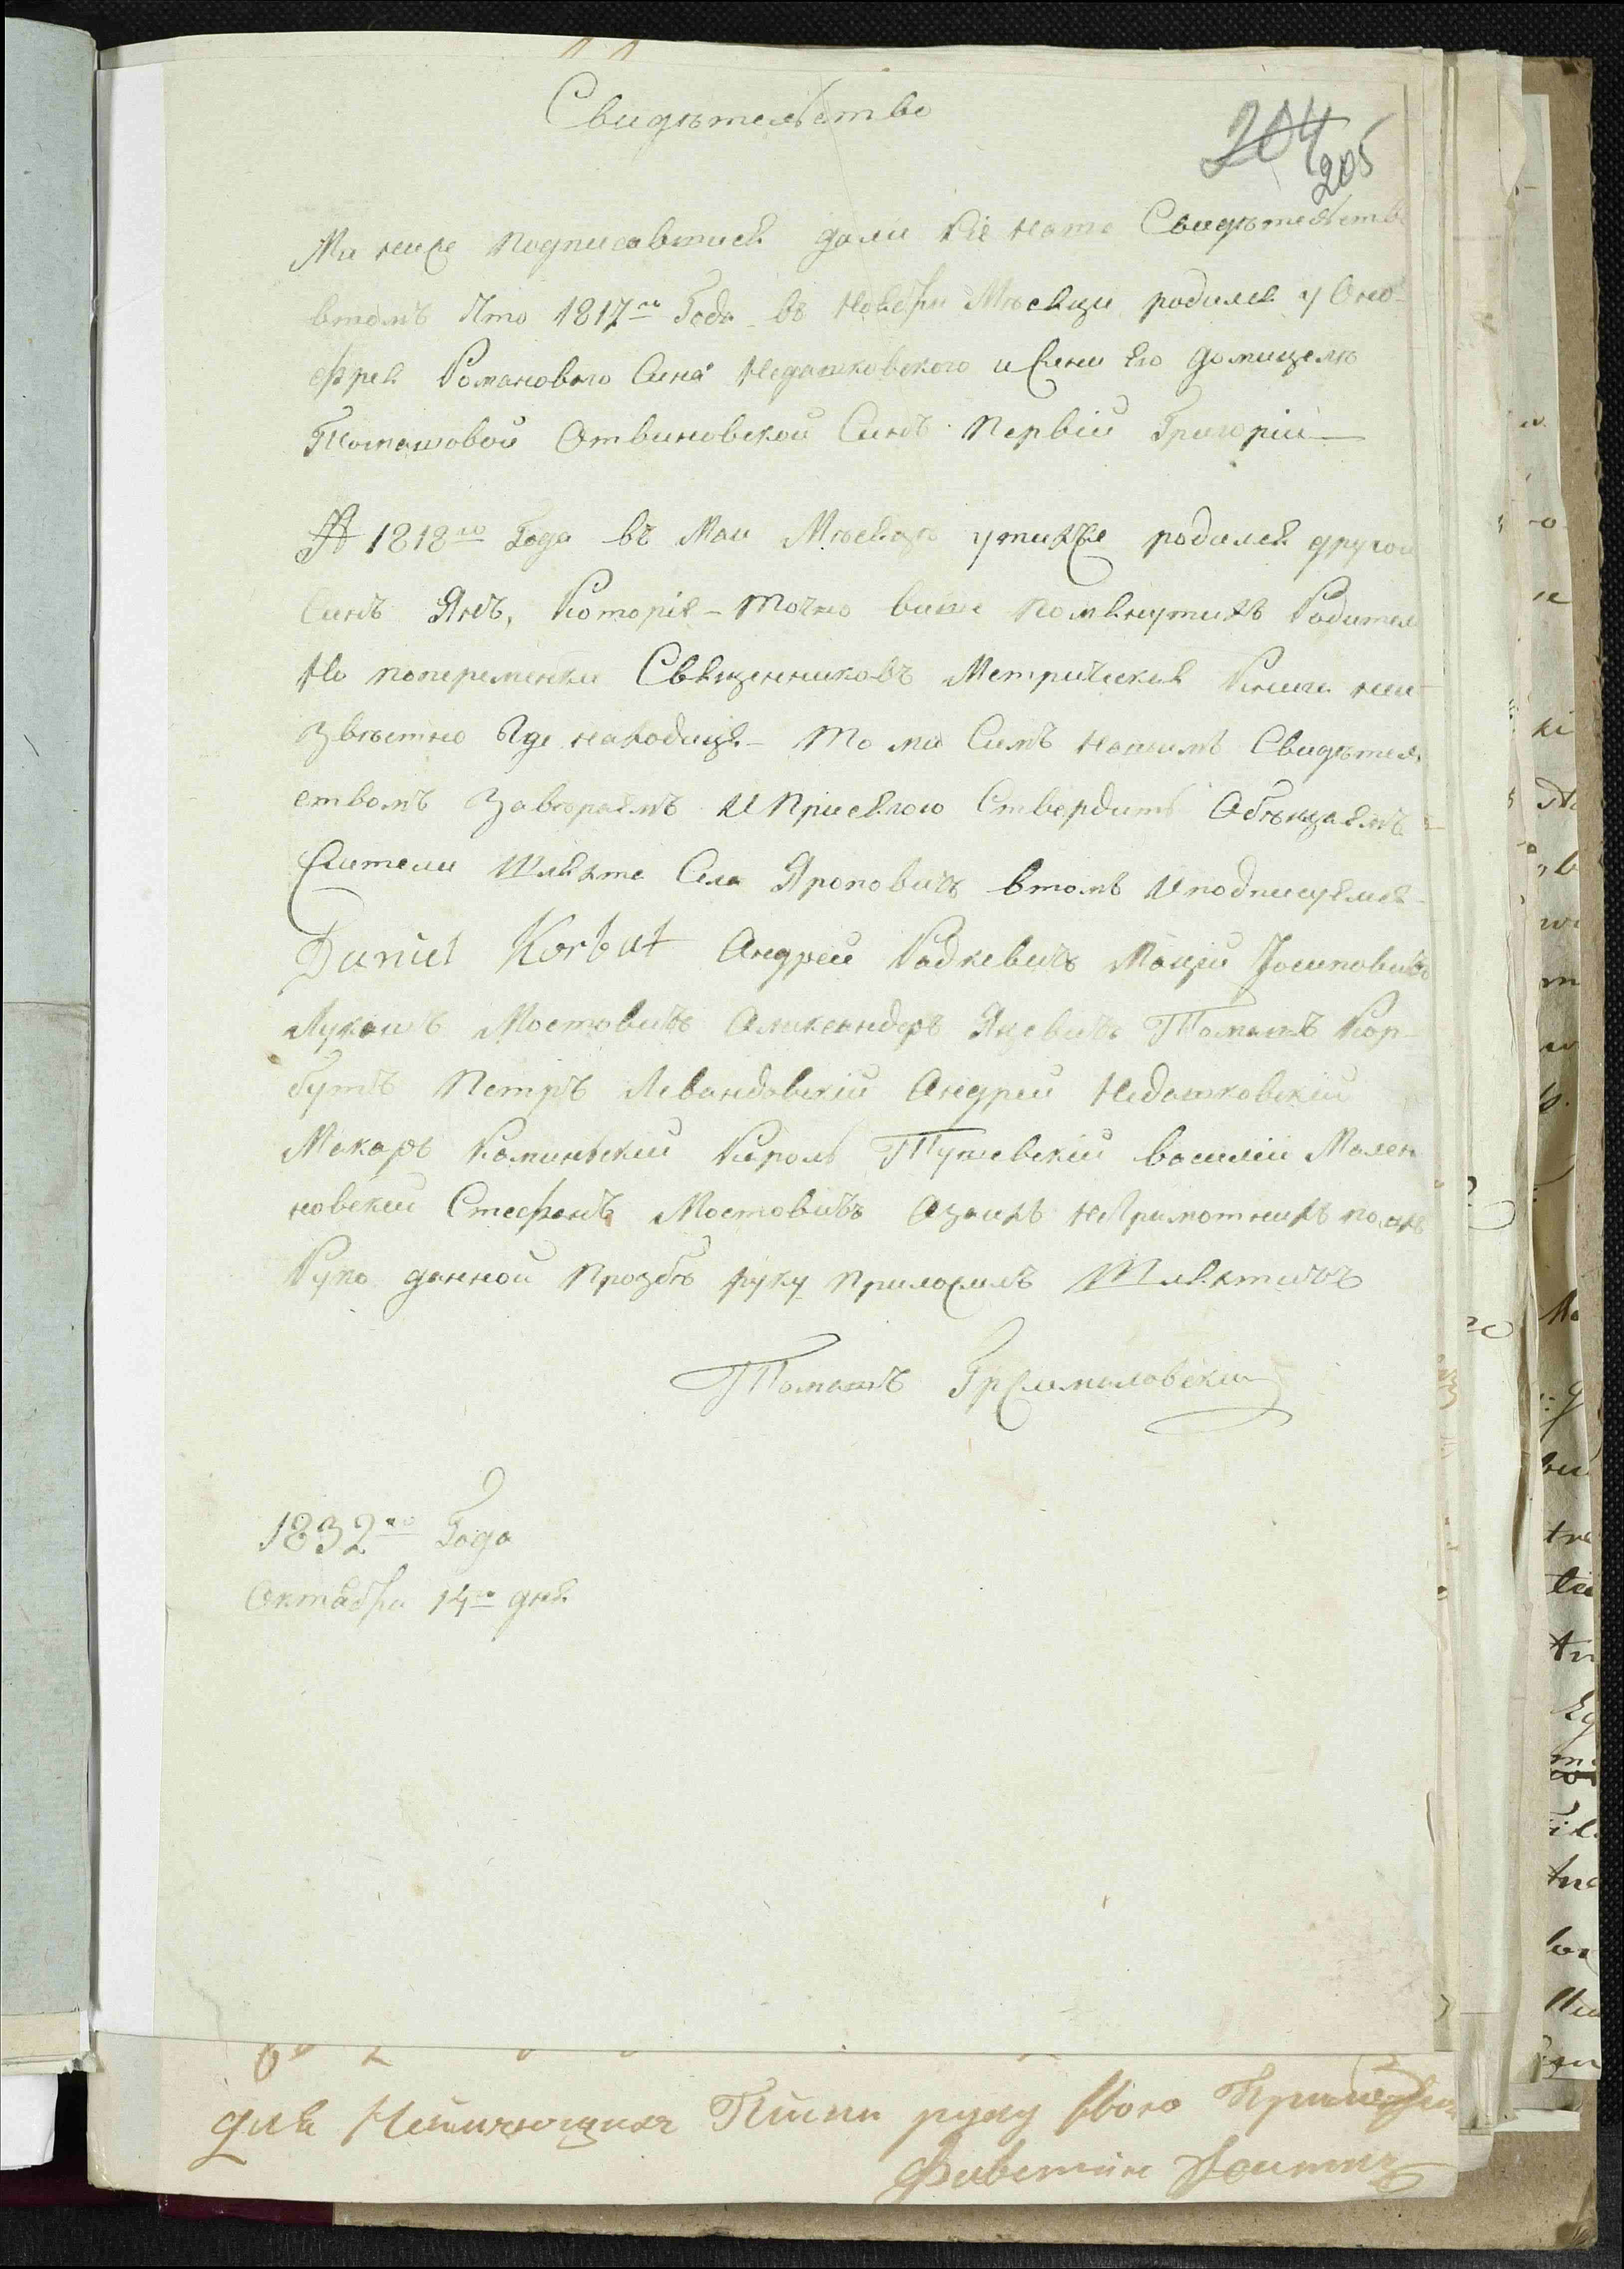 Свидѣтельство
204
205
Ми ниже подписавшися дали сіе наше Свидѣтельств
втомъ что 1817го Года въ Ноябри Мѣсяци родился у Оно-
фрея Романового Сина Недашковского и жени Его Домицелѣ
Томашовой Отвиновской Синъ Первій Григорій
А 1818го Года въ Маи Мѣсяцѣ утихже родился другой
Синъ Янъ, Которія - точно више помянутихъ Родител
Но попеременки Священниковъ Метрическая Книга неи-
звѣстно Где находиця - то ми Симъ нашимъ Свидѣтел
ствомъ Завѣраемъ И Присягою Ствердить Обѣщаемъ
Жители Шляхта Села Яроповичъ втомъ Иподписуемся
Daniel Korbut Андрей Радкевичъ Мацѣй Іосиповичъ
Лукашъ Мостовичъ Александеръ Яцевичъ Томашъ Кор-
бутъ Петръ Левандовскій Андрей Недашковскій
Макаръ Каминскій Кароль Тушевскій василій Мален
новскій Стефанъ Мостовичъ Азаихъ неграмотнихъ по ихъ
Рупо данной прозбѣ руку приложилъ Шляхтичъ
Томашъ Гржималовскій
1832го Года
Октября 14го дня
для Неимеющихъ руку свою